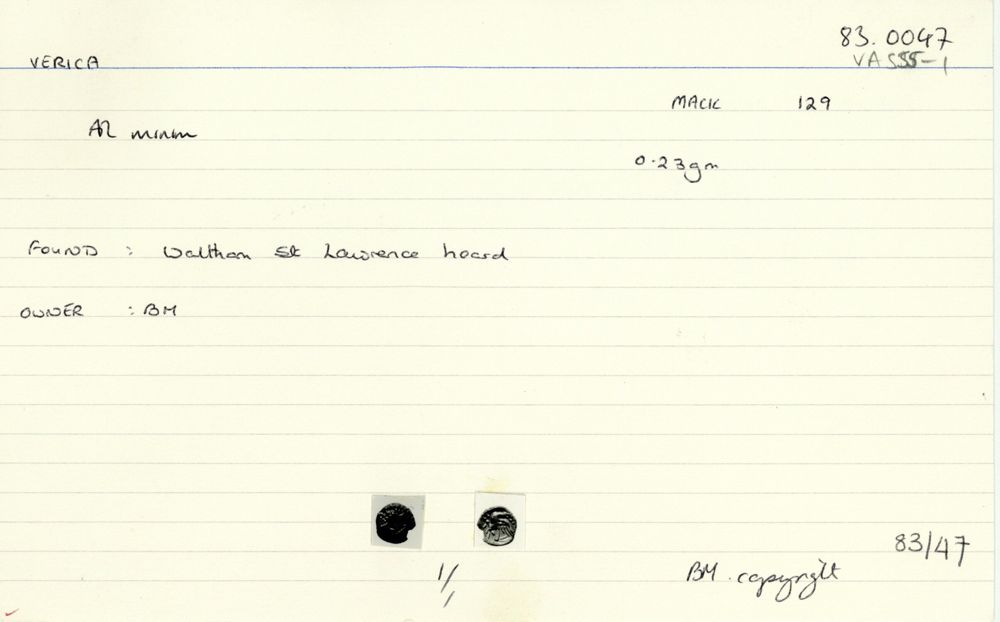 83.0047
VERICA
VA 555-1
MACK 129
AR minim
0.23gm
FOUND : Waltham St Lawrence hoard
OWNER : BM
83/47
1/1
BM copyright